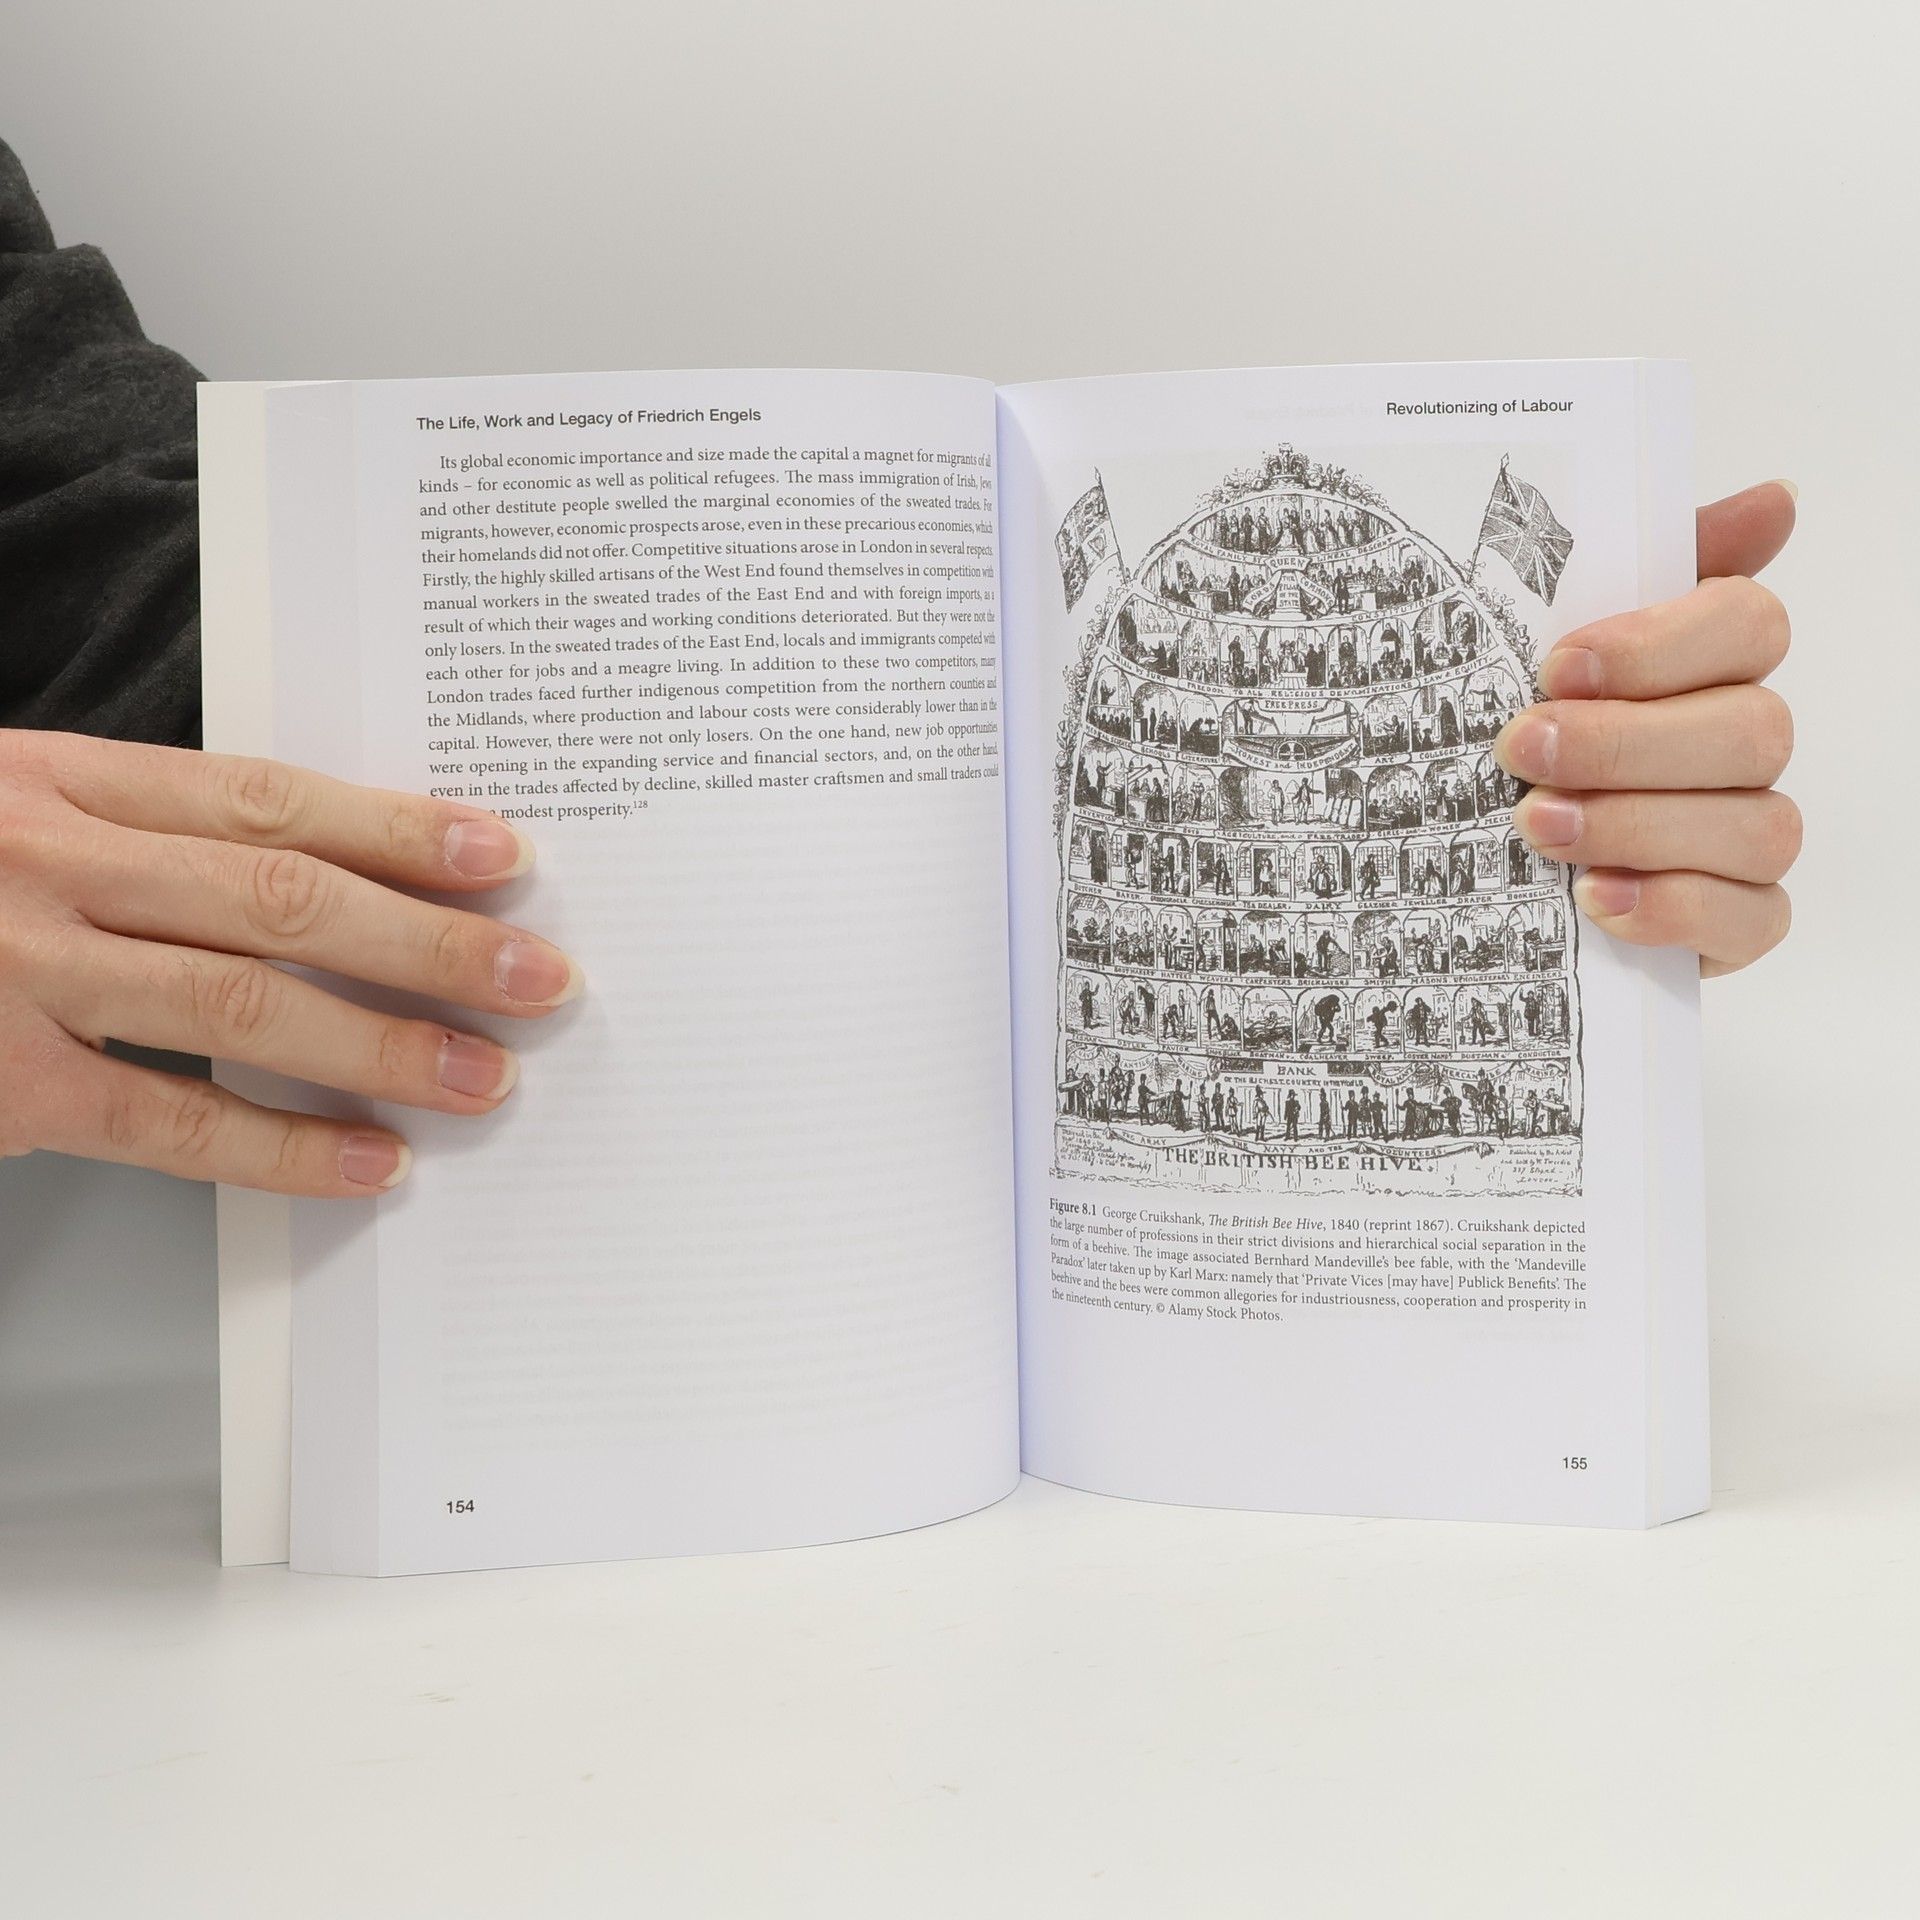 The Life, Work and Legacy of Friedrich Engels
Its global economic importance and size made the capital a magnet for migrants of all
kinds – for economic as well as political refugees. The mass immigration of Irish, Jews
and other destitute people swelled the marginal economies of the sweated trades. For
migrants, however, economic prospects arose, even in these precarious economies, which
their homelands did not offer. Competitive situations arose in London in several respects.
Firstly, the highly skilled artisans of the West End found themselves in competition with
manual workers in the sweated trades of the East End and with foreign imports, as a
result of which their wages and working conditions deteriorated. But they were not the
only losers. In the sweated trades of the East End, locals and immigrants competed with
each other for jobs and a meagre living. In addition to these two competitors, many
London trades faced further indigenous competition from the northern counties and
the Midlands, where production and labour costs were considerably lower than in the
capital. However, there were not only losers. On the one hand, new job opportunities
were opening in the expanding service and financial sectors, and, on the other hand,
even in the trades affected by decline, skilled master craftsmen and small traders could
modest prosperity.128
154
Revolutionizing of Labour
ROYAL FAMILY BY LINEAL DESCENT
QUEEN
LORDS COMMONS
THE BRITISH CONSTITUTION
TRIAL BY JURY FREEDOM TO ALL RELIGIOUS DENOMINATIONS LAW & EQUITY
FREE PRESS
HONEST and INDEPENDENT
SCHOOLS LITERATURE ART COLLEGES
AGRICULTURE and FREE TRADE GIRLS and WOMEN
BUTCHER BAKER TEA DEALER, DAIRY GLAZIER JEWELLER DRAPER BOOKSELLER
TAILORS BOOTMAKERS HATTERS WEAVERS CARPENTERS BRICKLAYERS SMITHS MASONS UPHOLSTERERS ENGINEERS
PAVIOR SHOEBLACK BOATMAN COALHEAVER SWEEP COSTER DUSTMAN CONDUCTOR
BANK
OF THE RICHEST COUNTRY IN THE WORLD
THE ARMY THE NAVY AND THE VOLUNTEERS
THE BRITISH BEE HIVE.
Published by the Artist
and sold by W Tweedie
337 Strand
LONDON
Figure 8.1 George Cruikshank, The British Bee Hive, 1840 (reprint 1867). Cruikshank depicted
the large number of professions in their strict divisions and hierarchical social separation in the
form of a beehive. The image associated Bernhard Mandeville's bee fable, with the 'Mandeville
Paradox' later taken up by Karl Marx: namely that 'Private Vices [may have] Publick Benefits'. The
beehive and the bees were common allegories for industriousness, cooperation and prosperity in
the nineteenth century. © Alamy Stock Photos.
155